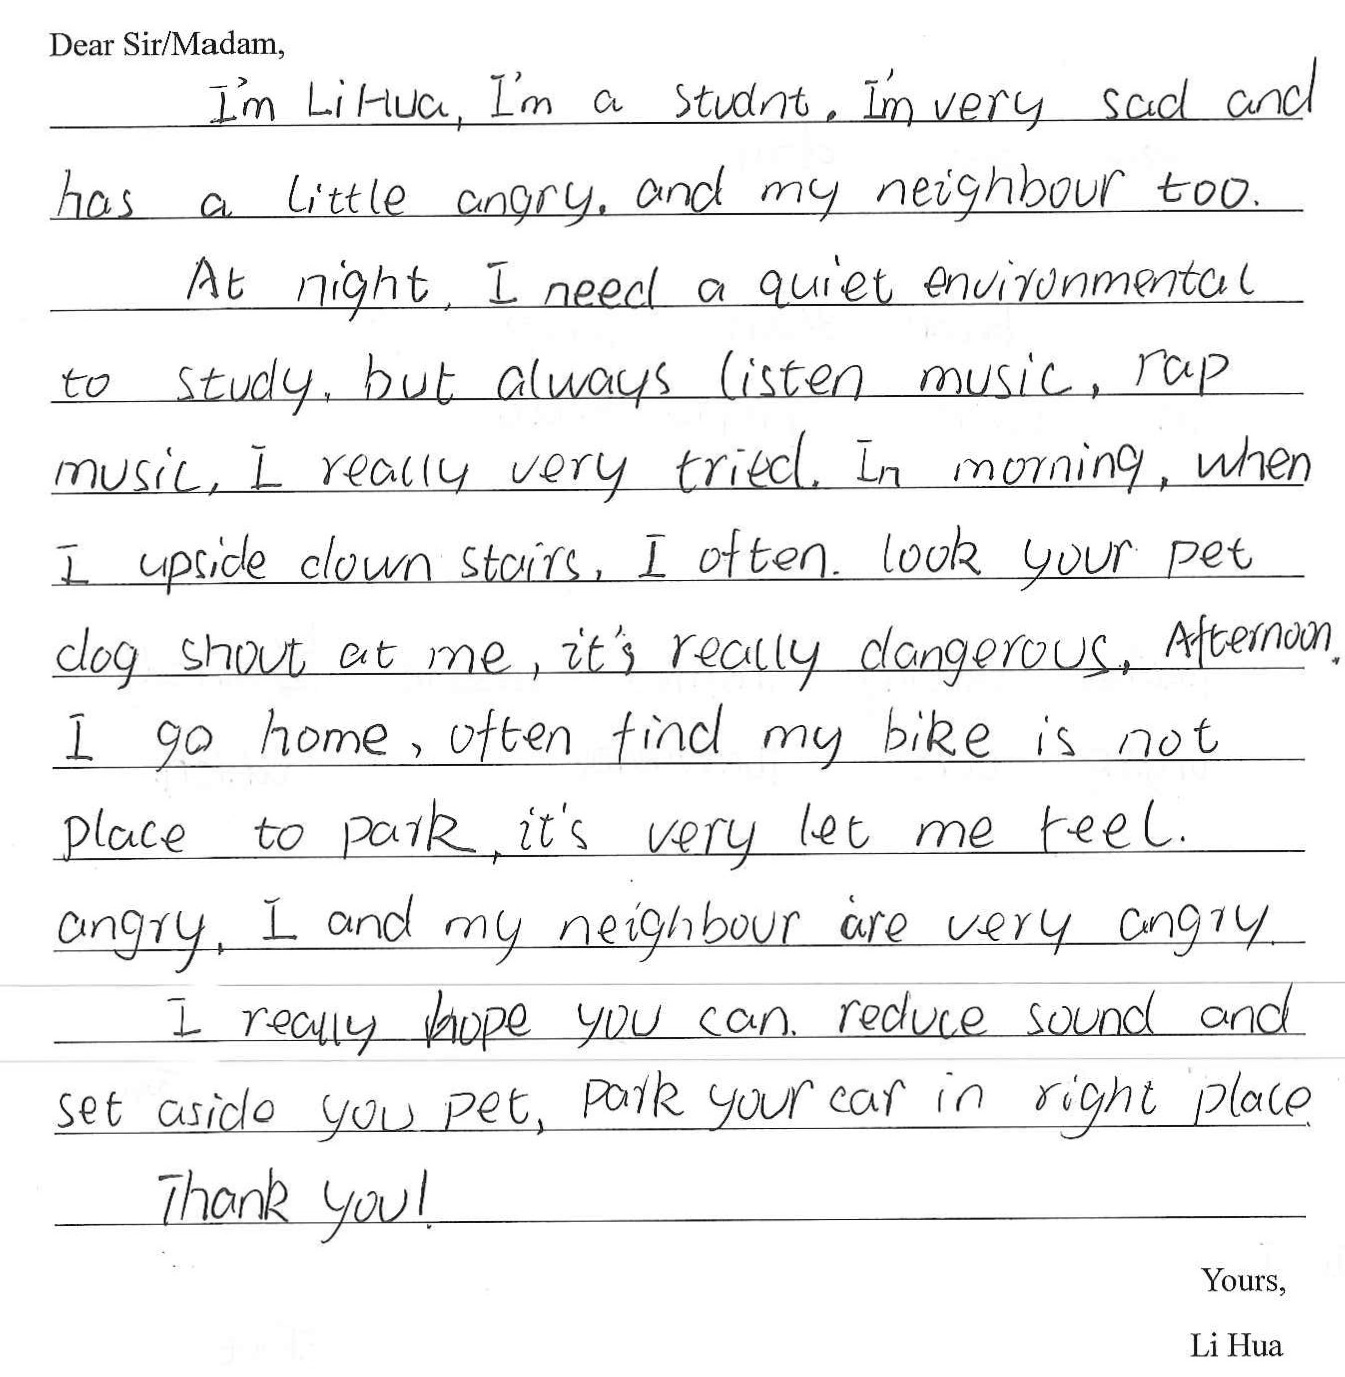 Dear Sir/Madam,
I'm Li Hua, I'm a studnt. I'm very sad and
has a little angry. and my neighbour too.
At night, I need a quiet environmental
to study. but always listen music, rap
music, I really very tried. In morning, when
I upside down stairs, I often. look your pet
dog shout at me, it's really dangerous. Afternoon,
I go home, often find my bike is not
place to park, it's very let me feel.
angry, I and my neighbour are very angry.
I really hope you can. reduce sound and
set aside you pet, park your car in right place.
Thank you!
Yours,
Li Hua